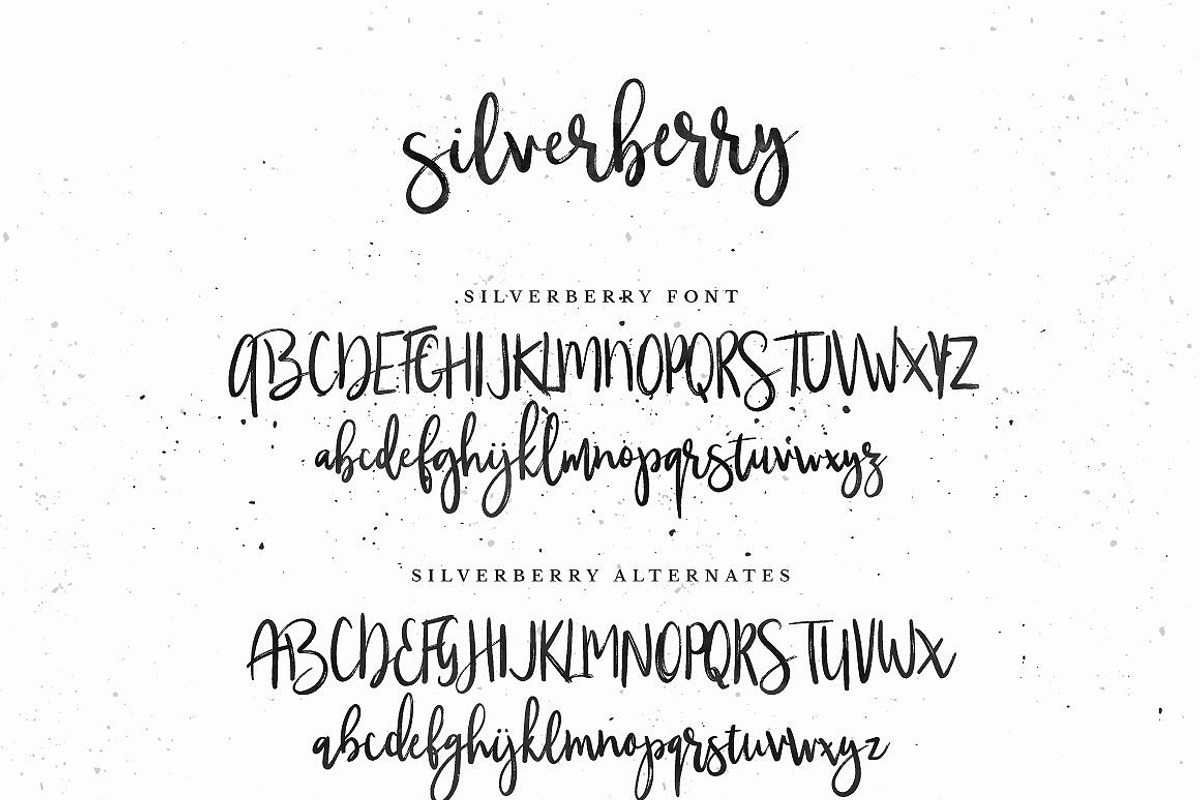 silverberry
SILVERBERRY FONT
ABCDEFGHIJKLMNOPQRSTUVWXYZ
abcdefghijklmnopqrstuvwxyz
SILVERBERRY ALTERNATES
ABCDEFGHIJKLMNOPQRSTUVWX
abcdefghijklmnopqrstuvwxyz